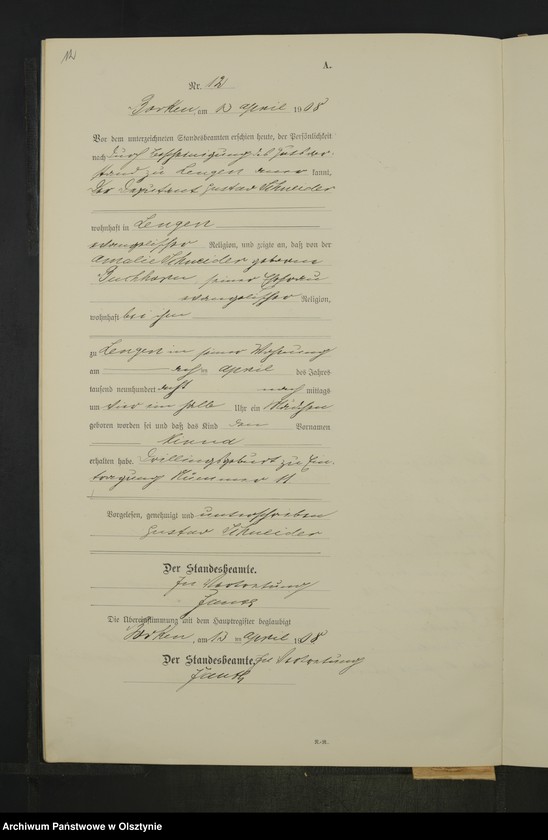 12
A.
Nr. 12
Borken, am 13 April 1908
Vor dem unterzeichneten Standesbeamten erschien heute, der Persönlichkeit
nach durch Bescheinigung d. Guts vor
stand zu Lengen aner kannt,
der Deputant Gustav Schneider
wohnhaft in Lengen
evangelischer Religion, und zeigte an, daß von der
Amalie Schneider geborene
Buchhorn seiner Ehefrau
evangelischer Religion,
wohnhaft bei ihm
zu Lengen in seiner Wohnung
am April des Jahres
tausend neunhundert acht nach mittags
um ein halb Uhr ein Mädchen
geboren worden sei und daß das Kind den Vornamen
erhalten habe. Drillingsgeburt zu Ein-
tragung Nummer 11
Vorgelesen, genehmigt und unterschrieben
Gustav Schneider
Der Standesbeamte.
In Vertretung
Die Übereinstimmung mit dem Hauptregister beglaubigt
Borken, am 13 ten April 1908
Der Standesbeamte. In Vertretung
Archiwum Państwowe w Olsztynie